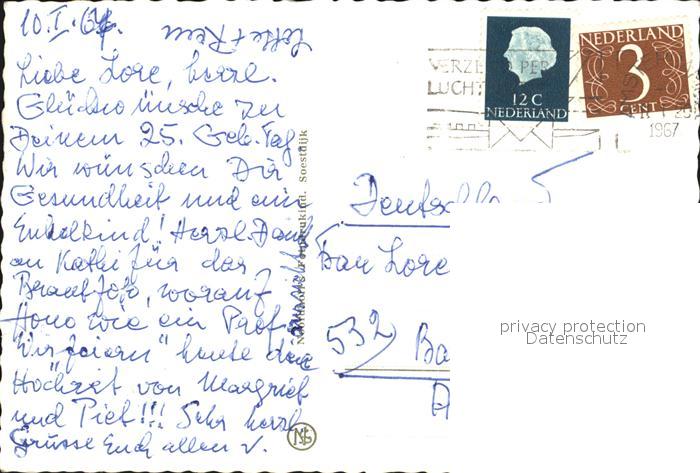 10.I.67.
Liebe Lore, herzl.
Glückwünsche zu
Deinem 25. Geb.Tag.
Wir wünschen Dir
Gesundheit und ein
Enkelkind! Herzl. Dank
an Kathi für das
Brautfoto, worauf
Hono wie ein Prof.
Wir "feiern" heute die
Hochzeit von Margriet
und Piet!!! Sehr herzl.
Grüsse Euch allen v.
Lotte + Rem
Soestdijk
12 C
NEDERLAND
NEDERLAND
3
CENT
VERZE PER
LUCHT
1967
Deutschl
Frau Lore
532 Ba
privacy protection
Datenschutz